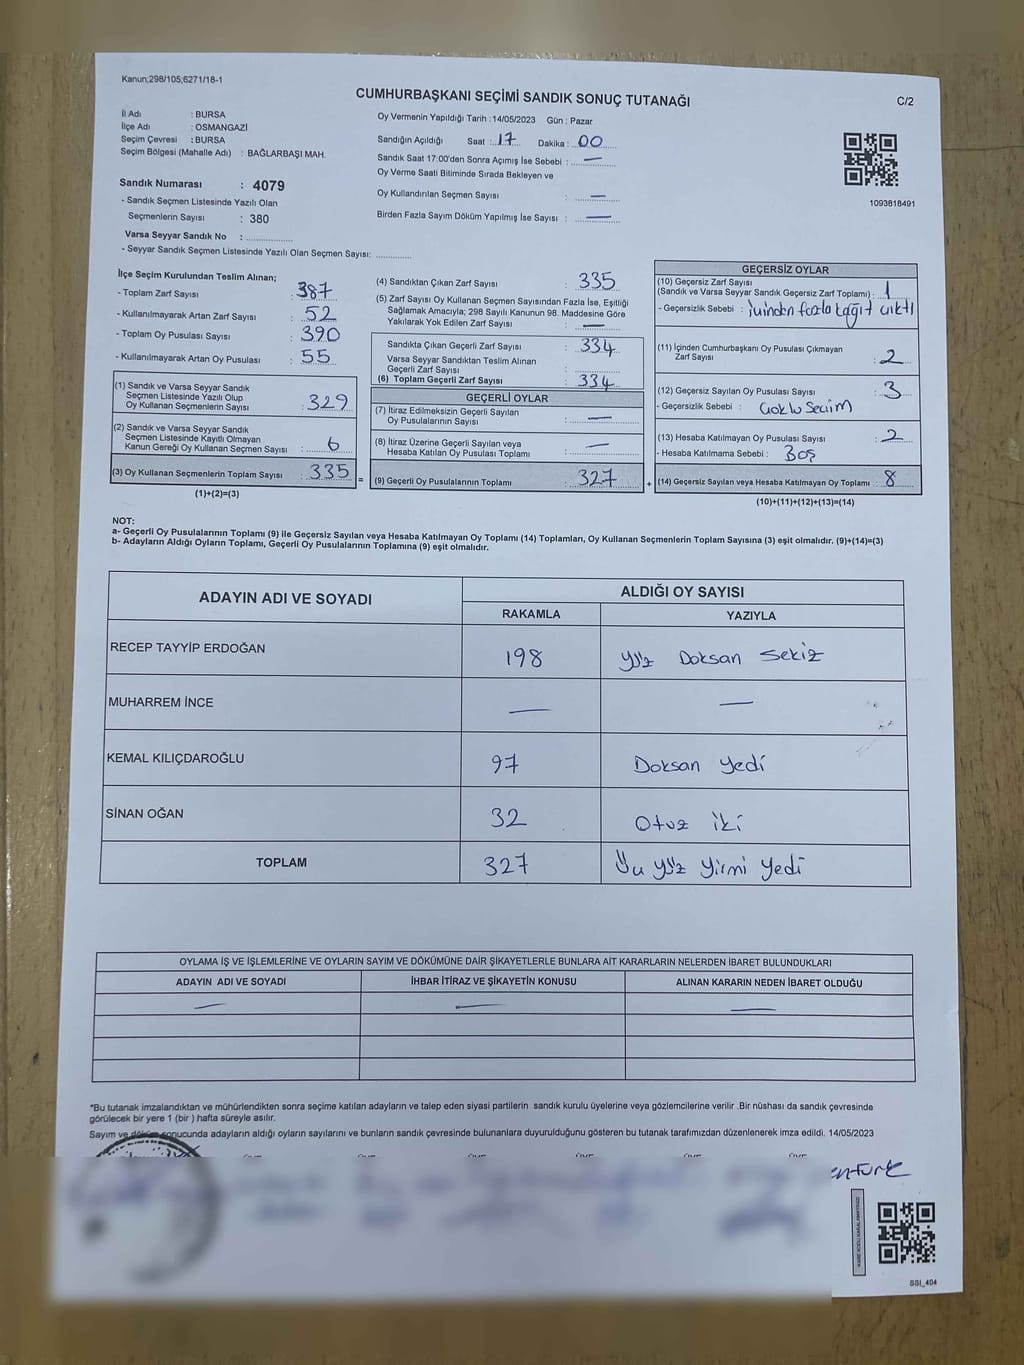 Kanun;298/105;6271/18-1
CUMHURBAŞKANI SEÇİMİ SANDIK SONUÇ TUTANAĞI
C/2
İl Adı : BURSA
İlçe Adı : OSMANGAZİ
Seçim Çevresi : BURSA
Seçim Bölgesi (Mahalle Adı) : BAĞLARBAŞI MAH.
Sandık Numarası : 4079
- Sandık Seçmen Listesinde Yazılı Olan
Seçmenlerin Sayısı : 380
Varsa Seyyar Sandık No : ................
- Seyyar Sandık Seçmen Listesinde Yazılı Olan Seçmen Sayısı: ............
Oy Vermenin Yapıldığı Tarih :14/05/2023 Gün : Pazar
Sandığın Açıldığı Saat : 17 Dakika : 00
Sandık Saat 17:00'den Sonra Açımış İse Sebebi : —
Oy Verme Saati Bitiminde Sırada Bekleyen ve
Oy Kullandırılan Seçmen Sayısı : —
Birden Fazla Sayım Döküm Yapılmış İse Sayısı : —
1093818491
İlçe Seçim Kurulundan Teslim Alınan;
- Toplam Zarf Sayısı : 387
- Kullanılmayarak Artan Zarf Sayısı : 52
- Toplam Oy Pusulası Sayısı : 390
- Kullanılmayarak Artan Oy Pusulası : 55
(1) Sandık ve Varsa Seyyar Sandık
Seçmen Listesinde Yazılı Olup
Oy Kullanan Seçmenlerin Sayısı : 329
(2) Sandık ve Varsa Seyyar Sandık
Seçmen Listesinde Kayıtlı Olmayan
Kanun Gereği Oy Kullanan Seçmen Sayısı : 6
(3) Oy Kullanan Seçmenlerin Toplam Sayısı : 335 =
(1)+(2)=(3)
(4) Sandıktan Çıkan Zarf Sayısı : 335
(5) Zarf Sayısı Oy Kullanan Seçmen Sayısından Fazla İse, Eşitliği
Sağlamak Amacıyla; 298 Sayılı Kanunun 98. Maddesine Göre
Yakılarak Yok Edilen Zarf Sayısı : —
Sandıkta Çıkan Geçerli Zarf Sayısı : 334
Varsa Seyyar Sandıktan Teslim Alınan
Geçerli Zarf Sayısı :
(6) Toplam Geçerli Zarf Sayısı : 334
GEÇERLİ OYLAR
(7) İtiraz Edilmeksizin Geçerli Sayılan
Oy Pusulalarının Sayısı : —
(8) İtiraz Üzerine Geçerli Sayılan veya
Hesaba Katılan Oy Pusulası Toplamı : —
(9) Geçerli Oy Pusulalarının Toplamı : 327 +
GEÇERSİZ OYLAR
(10) Geçersiz Zarf Sayısı
(Sandık ve Varsa Seyyar Sandık Geçersiz Zarf Toplamı) : 1
- Geçersizlik Sebebi : içinden fazla kağıt çıktı
(11) İçinden Cumhurbaşkanı Oy Pusulası Çıkmayan
Zarf Sayısı : 2
(12) Geçersiz Sayılan Oy Pusulası Sayısı : 3
- Geçersizlik Sebebi : Çoklu Seçim
(13) Hesaba Katılmayan Oy Pusulası Sayısı : 2
- Hesaba Katılmama Sebebi : Boş
(14) Geçersiz Sayılan veya Hesaba Katılmayan Oy Toplamı : 8
(10)+(11)+(12)+(13)=(14)
NOT:
a- Geçerli Oy Pusulalarının Toplamı (9) ile Geçersiz Sayılan veya Hesaba Katılmayan Oy Toplamı (14) Toplamları, Oy Kullanan Seçmenlerin Toplam Sayısına (3) eşit olmalıdır. (9)+(14)=(3)
b- Adayların Aldığı Oyların Toplamı, Geçerli Oy Pusulalarının Toplamına (9) eşit olmalıdır.
ADAYIN ADI VE SOYADI
ALDIĞI OY SAYISI
RAKAMLA YAZIYLA
RECEP TAYYİP ERDOĞAN 198 Yüz Doksan Sekiz
MUHARREM İNCE — —
KEMAL KILIÇDAROĞLU 97 Doksan Yedi
SİNAN OĞAN 32 Otuz iki
TOPLAM 327 Üç Yüz Yirmi Yedi
OYLAMA İŞ VE İŞLEMLERİNE VE OYLARIN SAYIM VE DÖKÜMÜNE DAİR ŞİKAYETLERLE BUNLARA AİT KARARLARIN NELERDEN İBARET BULUNDUKLARI
ADAYIN ADI VE SOYADI İHBAR İTİRAZ VE ŞİKAYETİN KONUSU ALINAN KARARIN NEDEN İBARET OLDUĞU
— — —
*Bu tutanak imzalandıktan ve mühürlendikten sonra seçime katılan adayların ve talep eden siyasi partilerin sandık kurulu üyelerine veya gözlemcilerine verilir .Bir nüshası da sandık çevresinde
görülecek bir yere 1 (bir ) hafta süreyle asılır.
Sayım ve döküm sonucunda adayların aldığı oyların sayılarını ve bunların sandık çevresinde bulunanlara duyurulduğunu gösteren bu tutanak tarafımızdan düzenlenerek imza edildi. 14/05/2023
SSI_404